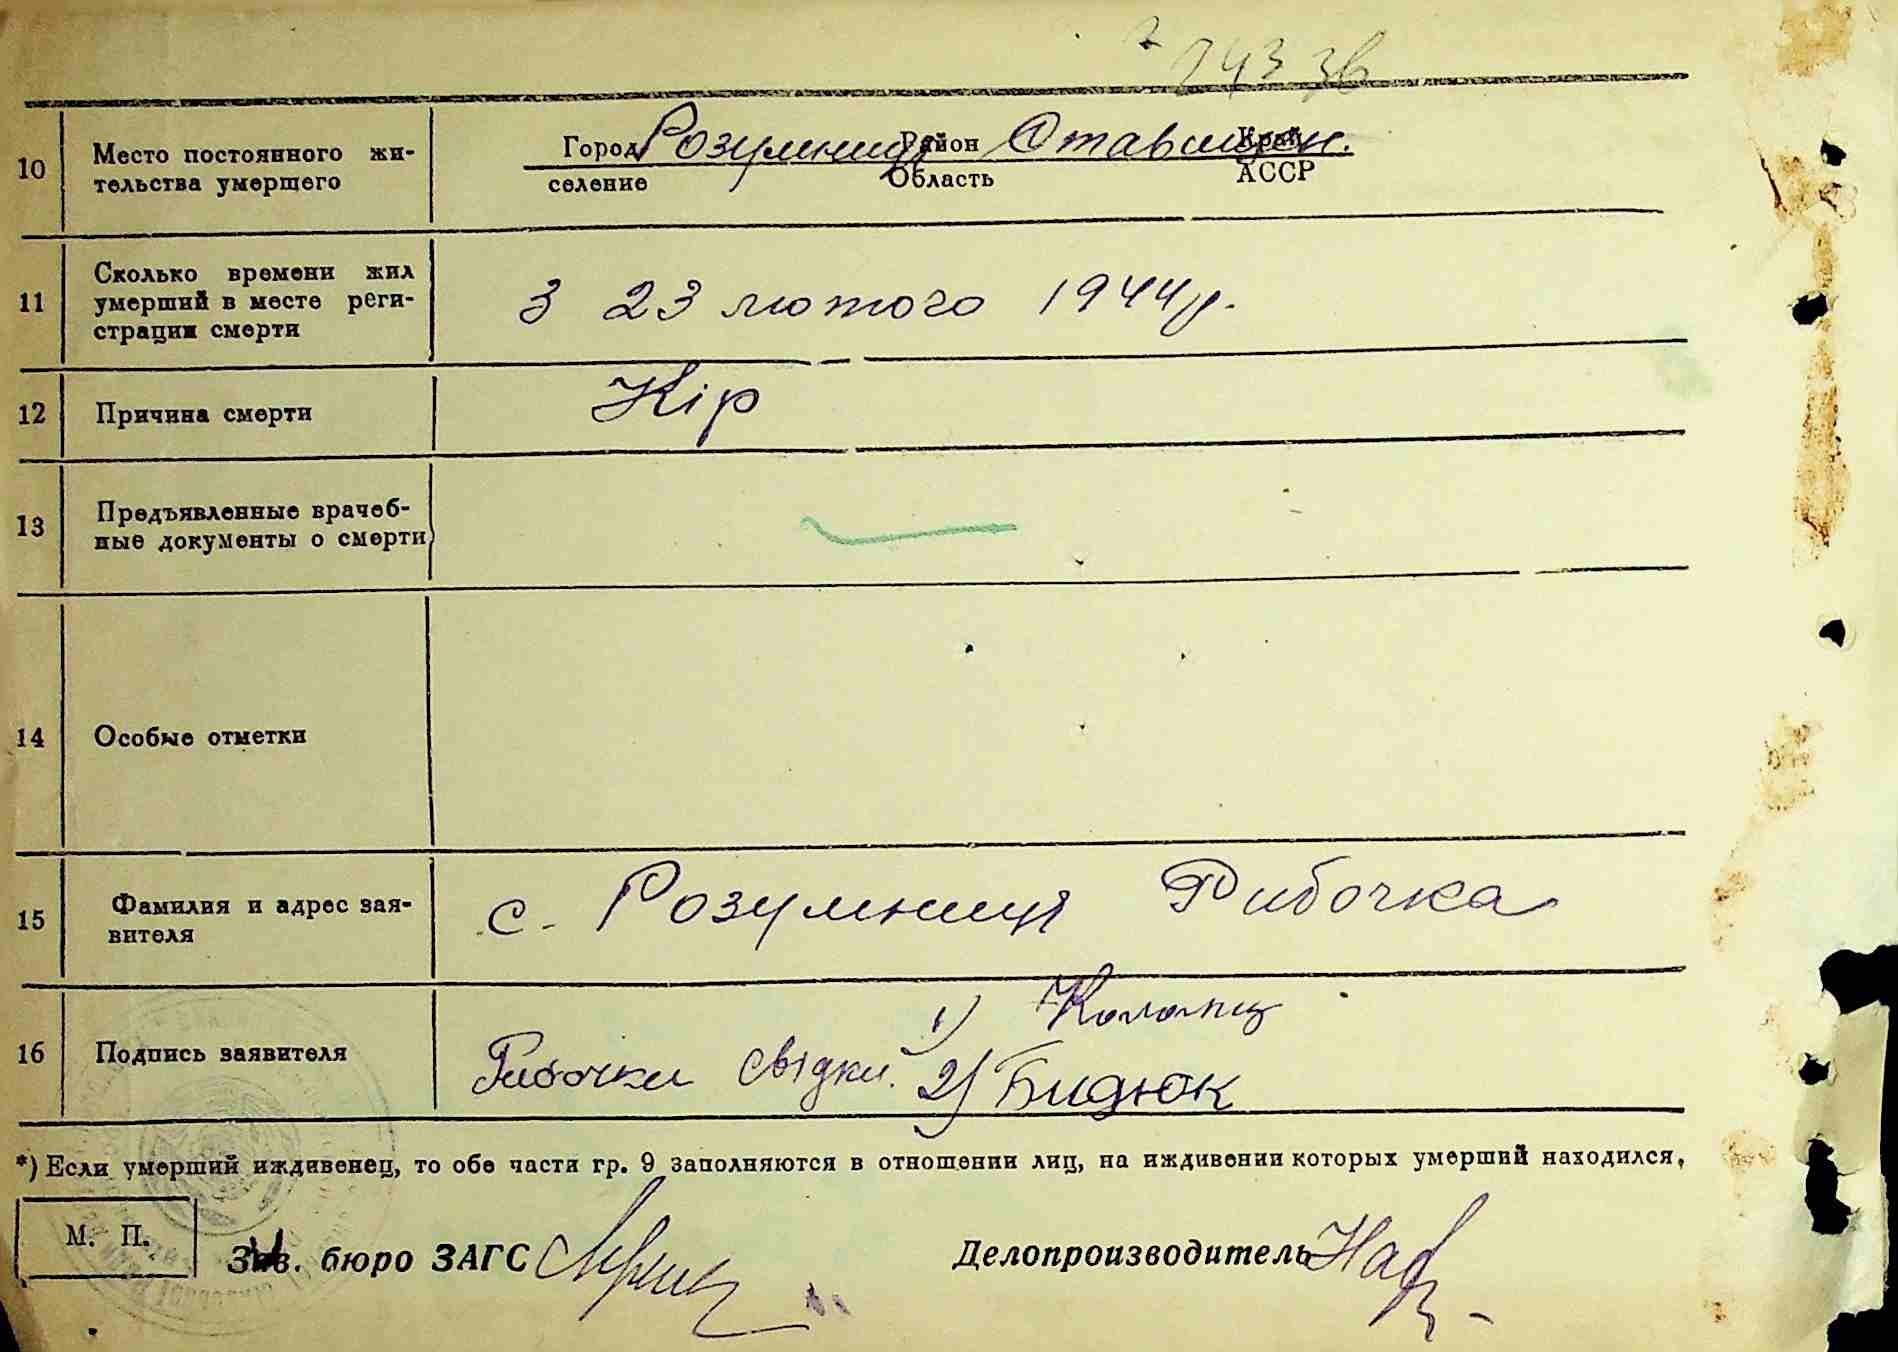 10 Место постоянного жи-
тельства умершего
Город Розумниця Район Ставищен. Край
селение Область АССР
11 Сколько времени жил
умерший в месте реги-
страции смерти
З 23 лютого 1944 р.
12 Причина смерти Кір
13 Предъявленные врачеб-
ные документы о смерти
14 Особые отметки
15 Фамилия и адрес зая-
вителя
с. Розумниця Рибочка
16 Подпись заявителя
1)
Рибочка свідки. 2) Бидюк
*) Если умерший иждивенец, то обе части гр. 9 заполняются в отношении лиц, на иждивении которых умерший находился.
М. П.
Зав. бюро ЗАГС Делопроизводитель